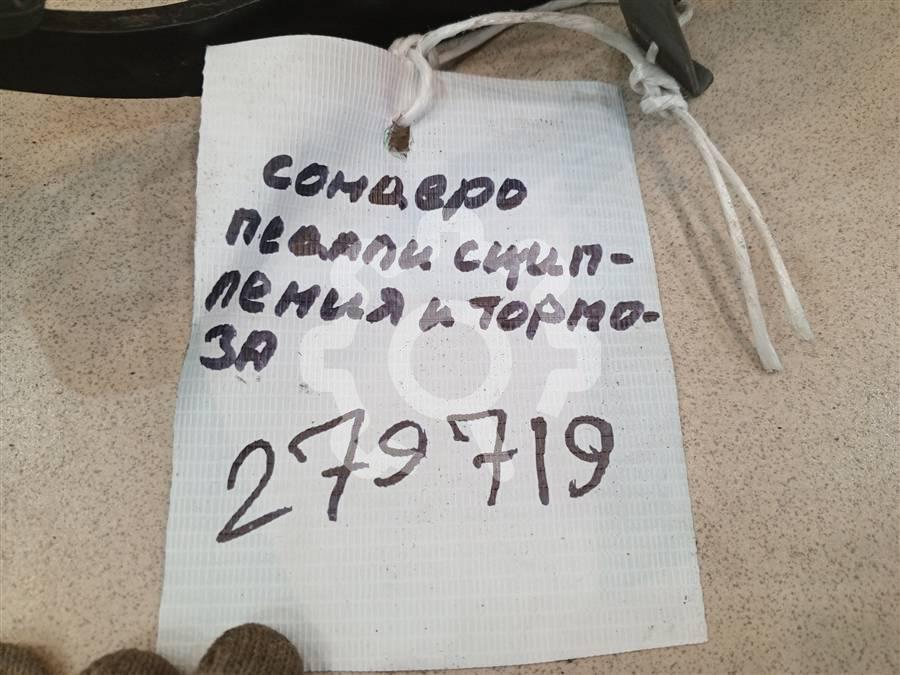 Сондеро
педали сцип-
ления и тормо-
за
279719